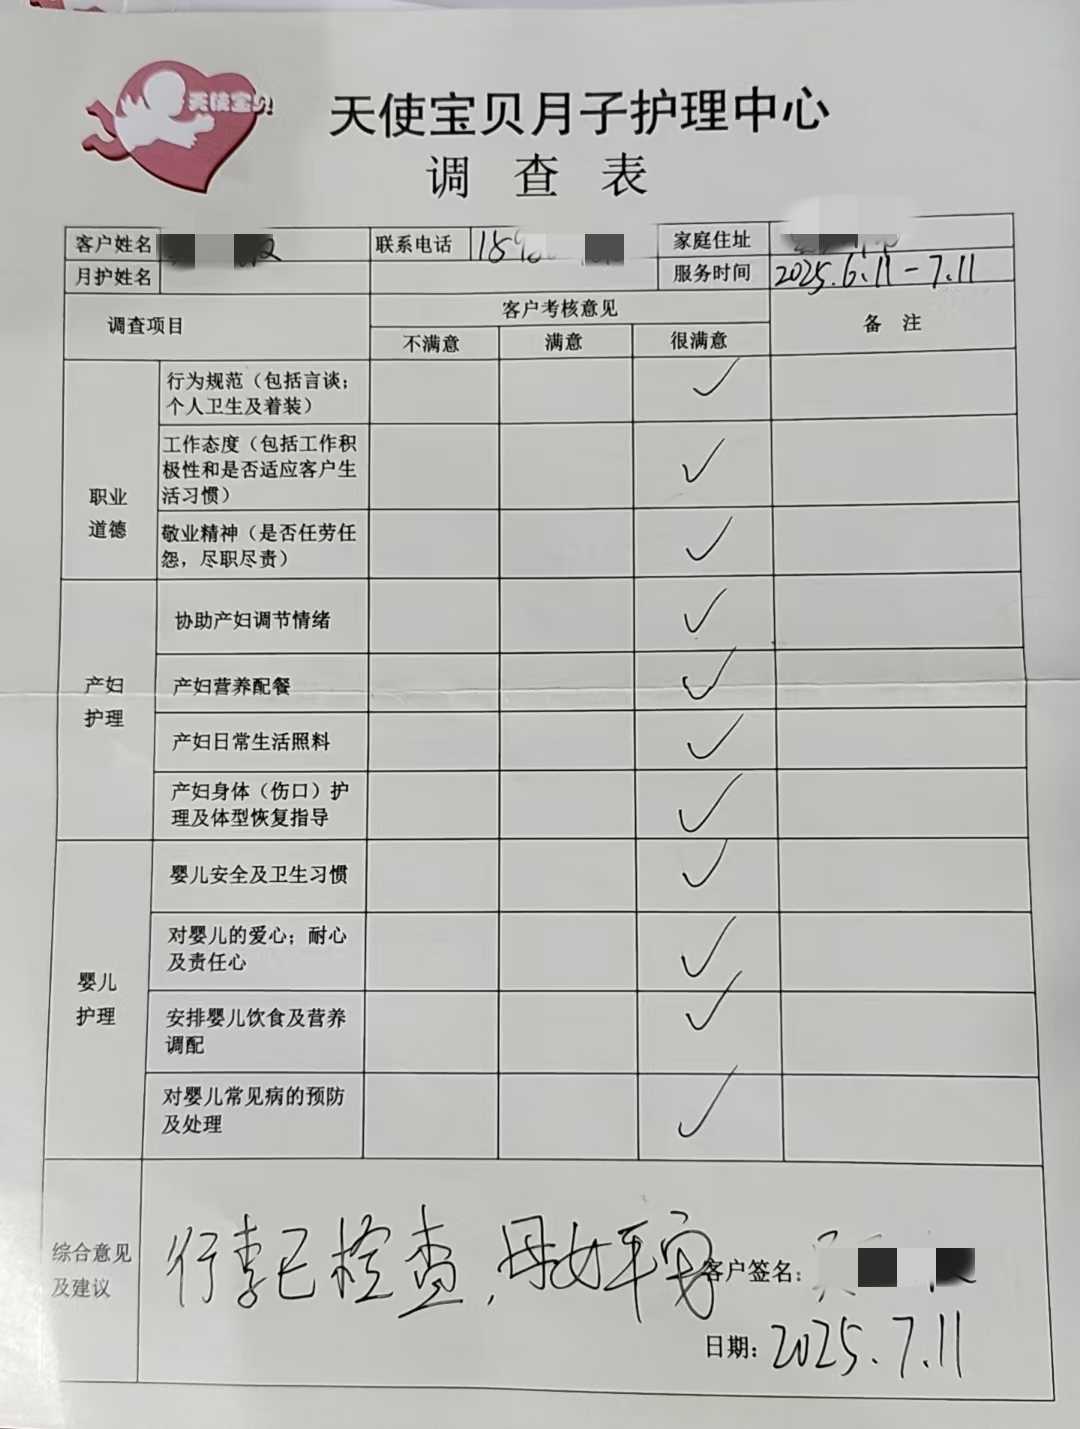 天使宝贝
天使宝贝月子护理中心
调查表
客户姓名 联系电话 家庭住址
月护姓名 服务时间 2025.6.11-7.11
调查项目 客户考核意见 备注
不满意 满意 很满意
职业
道德
行为规范（包括言谈；
个人卫生及着装） ✓
工作态度（包括工作积
极性和是否适应客户生
活习惯） ✓
敬业精神（是否任劳任
怨，尽职尽责） ✓
产妇
护理
协助产妇调节情绪 ✓
产妇营养配餐 ✓
产妇日常生活照料 ✓
产妇身体（伤口）护
理及体型恢复指导 ✓
婴儿
护理
婴儿安全及卫生习惯 ✓
对婴儿的爱心；耐心
及责任心 ✓
安排婴儿饮食及营养
调配 ✓
对婴儿常见病的预防
及处理 ✓
综合意见
及建议
行李已检查，母女平安
客户签名：
日期：2025.7.11